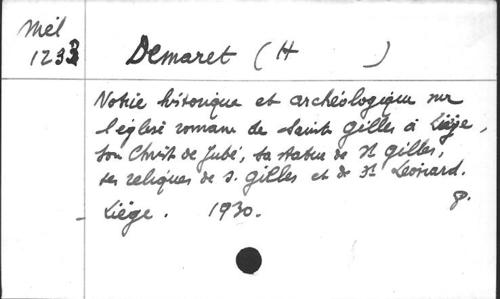 Mél
123B
Demaret (H )
Notice historique et archéologique sur
l'église romane de Saint Gilles à Liège,
son Christ de Jubé, sa statue de St Gilles,
ses reliques de S. Gilles et de St Leonard.
Liège. 1930. 8.